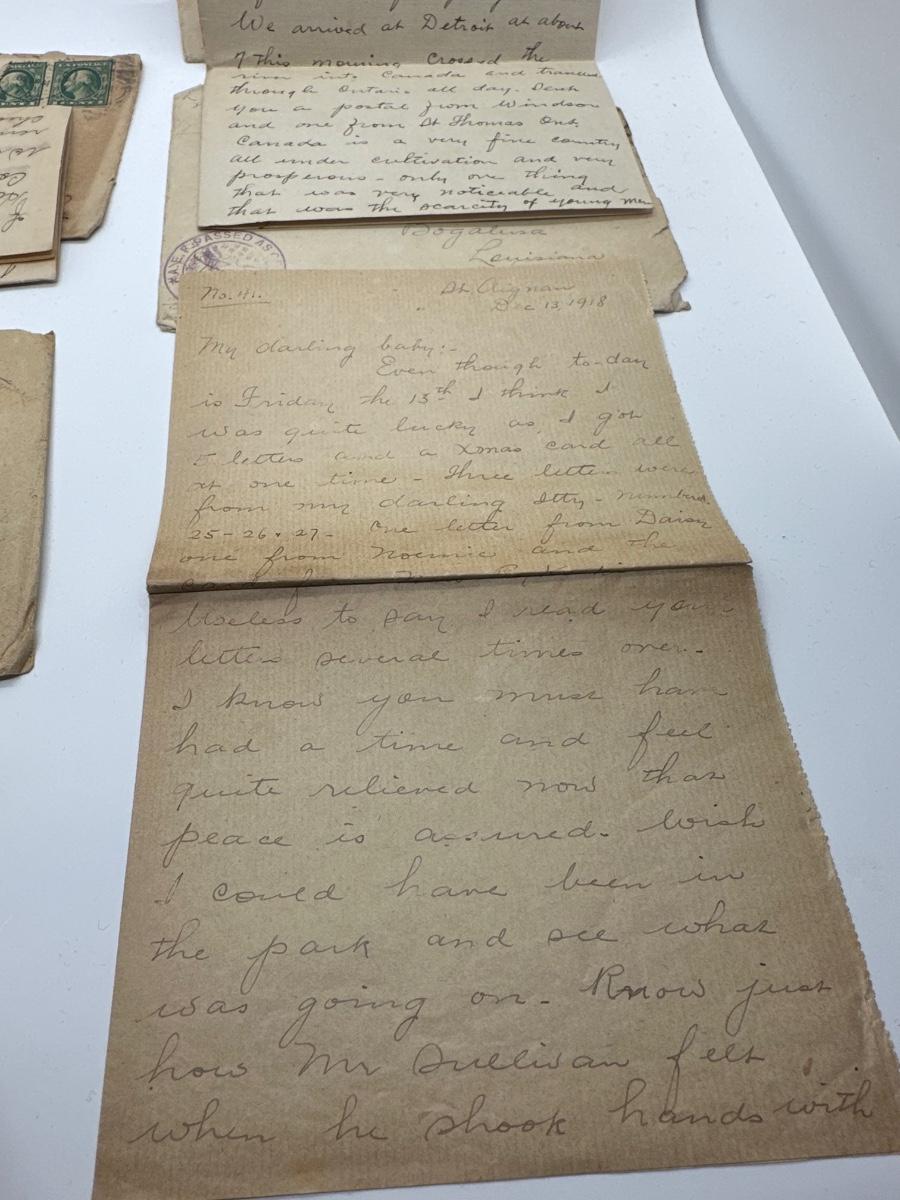 We arrived at Detroit at about
7 this morning Crossed the
river into Canada and
through Ontario all day. Sent
you a postal from Windsor
and one from St Thomas Ont.
Canada is a very fine country
all under cultivation and very
prosperous - only one thing
that was very noticeable and
that was the scarcity of young men
Bogalusa
Louisiana
A.E.F. PASSED AS
No. 41.
St. Aignan
Dec 13, 1918
My darling baby:-
Even though to-day
is Friday the 13th I think I
was quite lucky as I got
5 letters and a Xmas card all
at one time - Three letters were
from my darling Itty - numbers
25-26 & 27 - One letter from Daisy
one from Noemie and the
Useless to say I read your
letters several times over.
I know you must have
had a time and feel
quite relieved now that
peace is assured. Wish
I could have been in
the park and see what
was going on - Know just
how Mr Sullivan felt
when he shook hands with